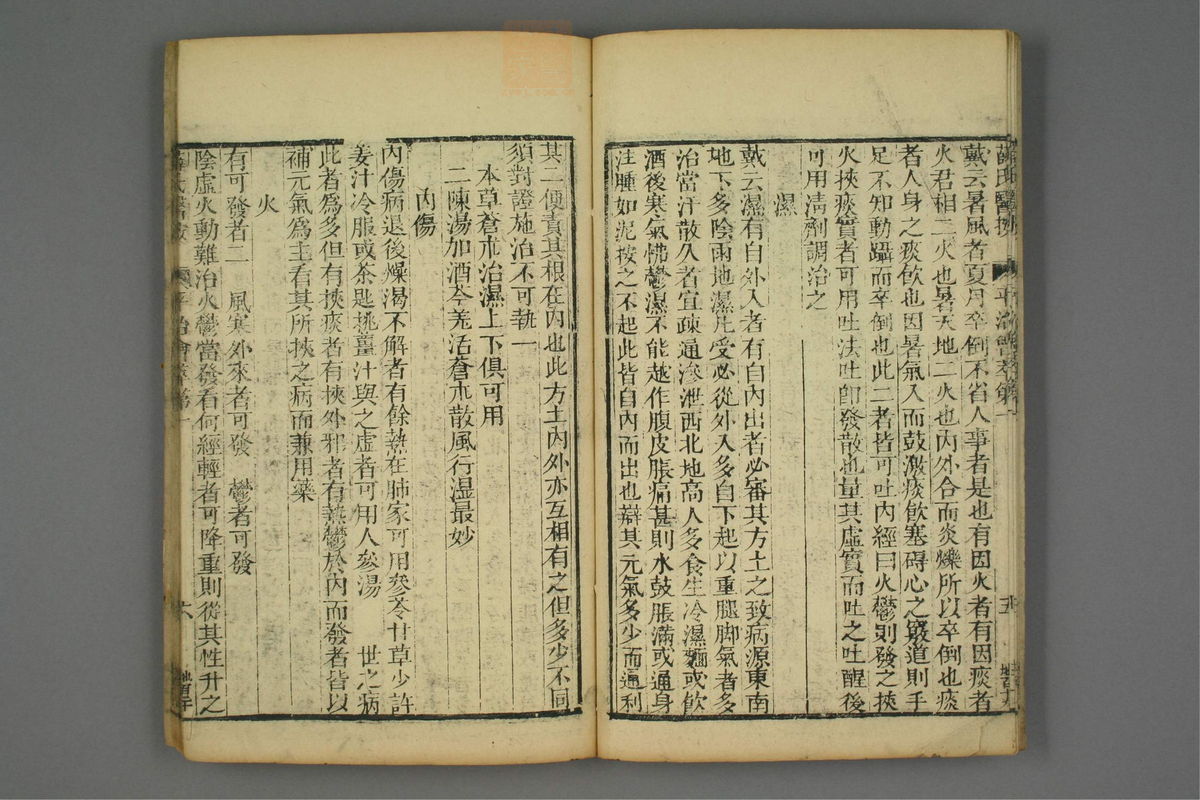 戴云暑風者夏月卒倒不省人事者是也有因火者有因痰者
火君相二火也暑天地二火也內外合而炎爍所以卒倒也痰
者人身之痰飲也因暑氣入而鼓激痰飲塞碍心之竅道則手
足不知動躡而卒倒也此二者皆可吐內經曰火鬱則發之挾
火挾痰實者可用吐法吐卽發散也量其虛實而吐之吐醒後
可用淸劑調治之
濕
戴云濕有自外入者有自內出者必審其方土之致病源東南
地下多陰雨地濕凡受必從外入多自下起以重腿脚氣者多
治當汗散久者宜疎通滲泄西北地高人多食生冷濕麵或飲
酒後寒氣怫鬱濕不能越作腹皮脹痛甚則水鼓脹滿或通身
注腫如泥按之不起此皆自內而出也辯其元氣多少而通利
其二便責其根在內也此方土內外亦互相有之但多少不同
須對證施治不可執一
本草蒼朮治濕上下俱可用
二陳湯加酒芩羌活蒼朮散風行湿最妙
內傷
內傷病退後燥渴不解者有餘熱在肺家可用參苓甘草少許
姜汁冷服或茶匙挑薑汁與之虛者可用人參湯 世之病
此者爲多但有挾痰者有挾外邪者有熱鬱於內而發者皆以
補元氣爲主看其所挾之病而兼用藥
火
有可發者二 風寒外來者可發 鬱者可發
陰虛火動難治火鬱當發看何經輕者可降重則從其性升之
六